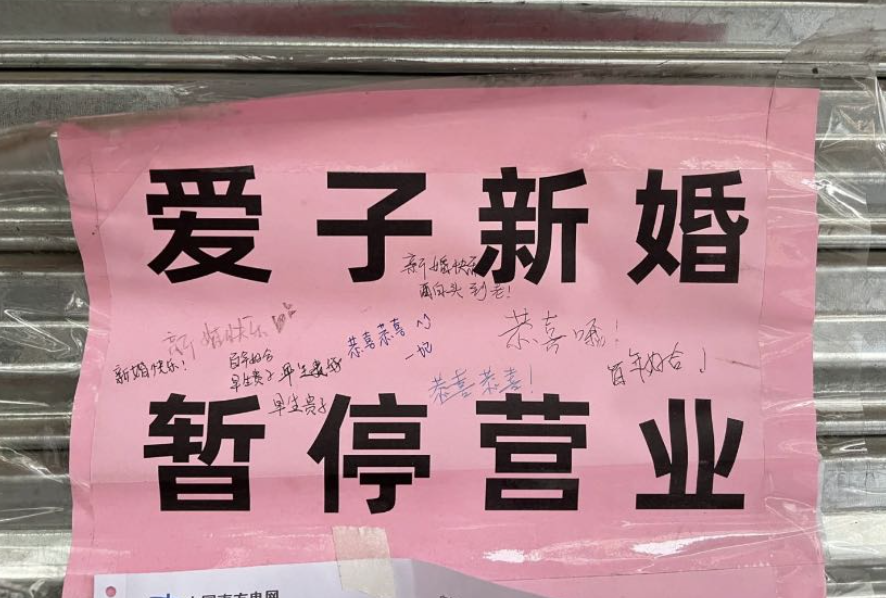 爱子新婚
新婚快乐
白头到老!
新婚快乐
恭喜恭喜
恭喜嗮!
新婚快乐!
百年好合
早生贵子
早生贵子
恭喜恭喜!
百年好合
早生贵子
暂停营业